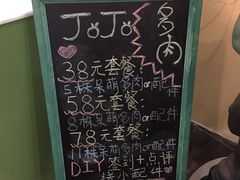 JoJo 多肉
38元套餐:
5株呆萌多肉or配件
58元套餐:
8株呆萌多肉or配件
78元套餐:
11株呆萌多肉or配件
DIY 签到+点评
送小配件